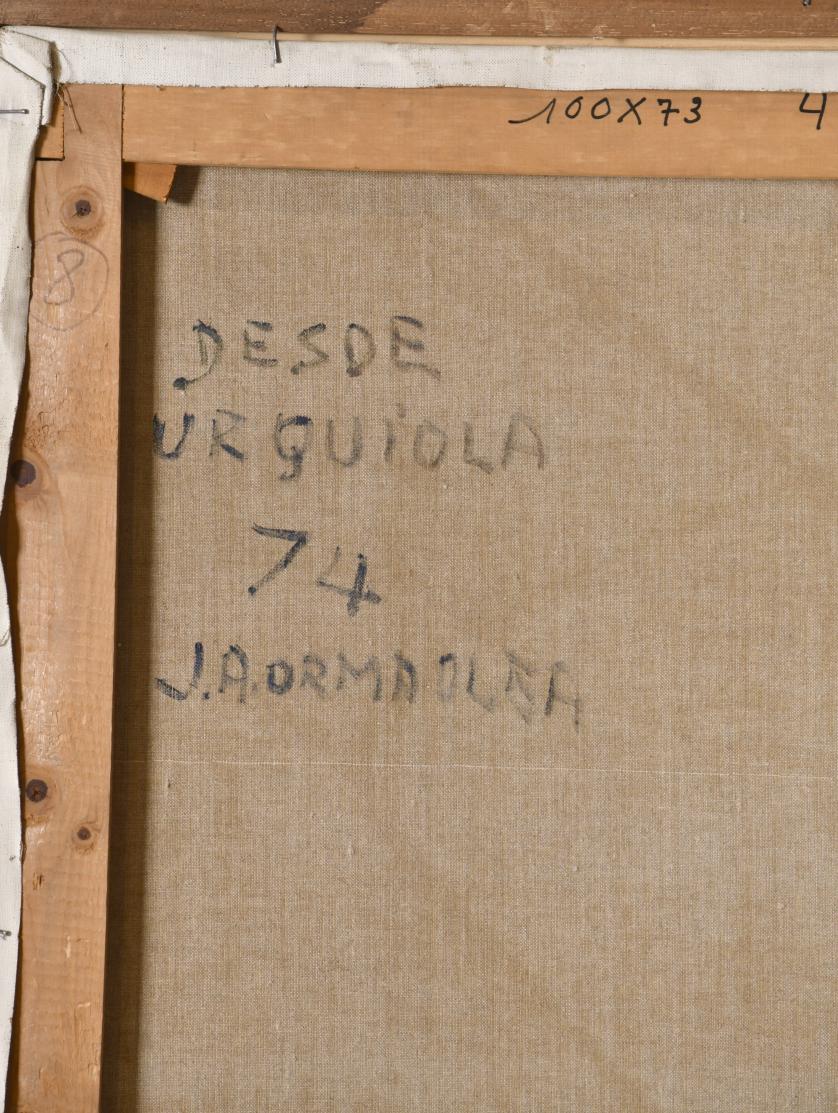 100X73 4
8
DESDE
URQUIOLA
74
J.A.ORMAOLEA